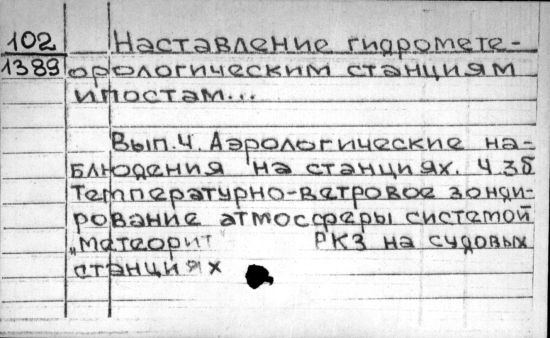 102 Наставление гидромете-
1389 орологическим станциям
ипостам...
Вып.4. Аэрологические на-
блюдения на станциях. Ч.3б
Температурно-ветровое зонди-
рование атмосферы системой
„Метеорит РКЗ на судовых
станциях